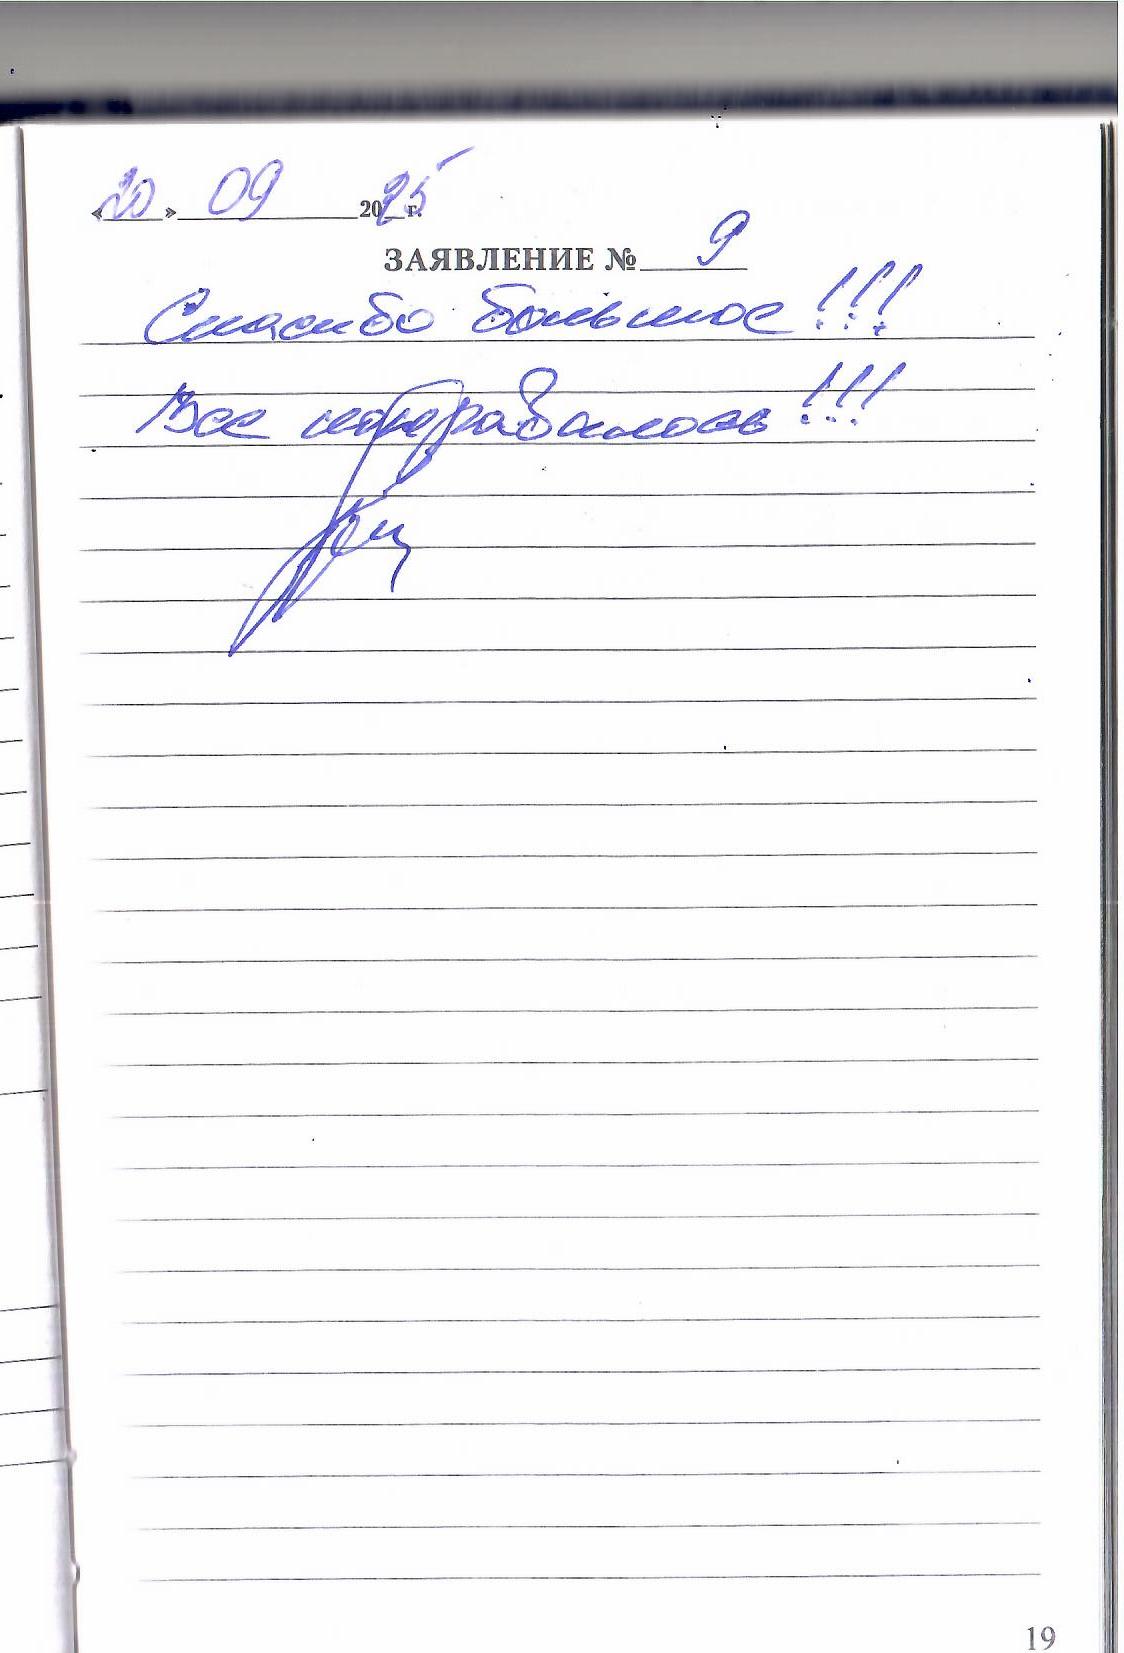 «20» 09 2025 г.
ЗАЯВЛЕНИЕ № 9
Спасибо большое!!!
Все понравилось!!!
19